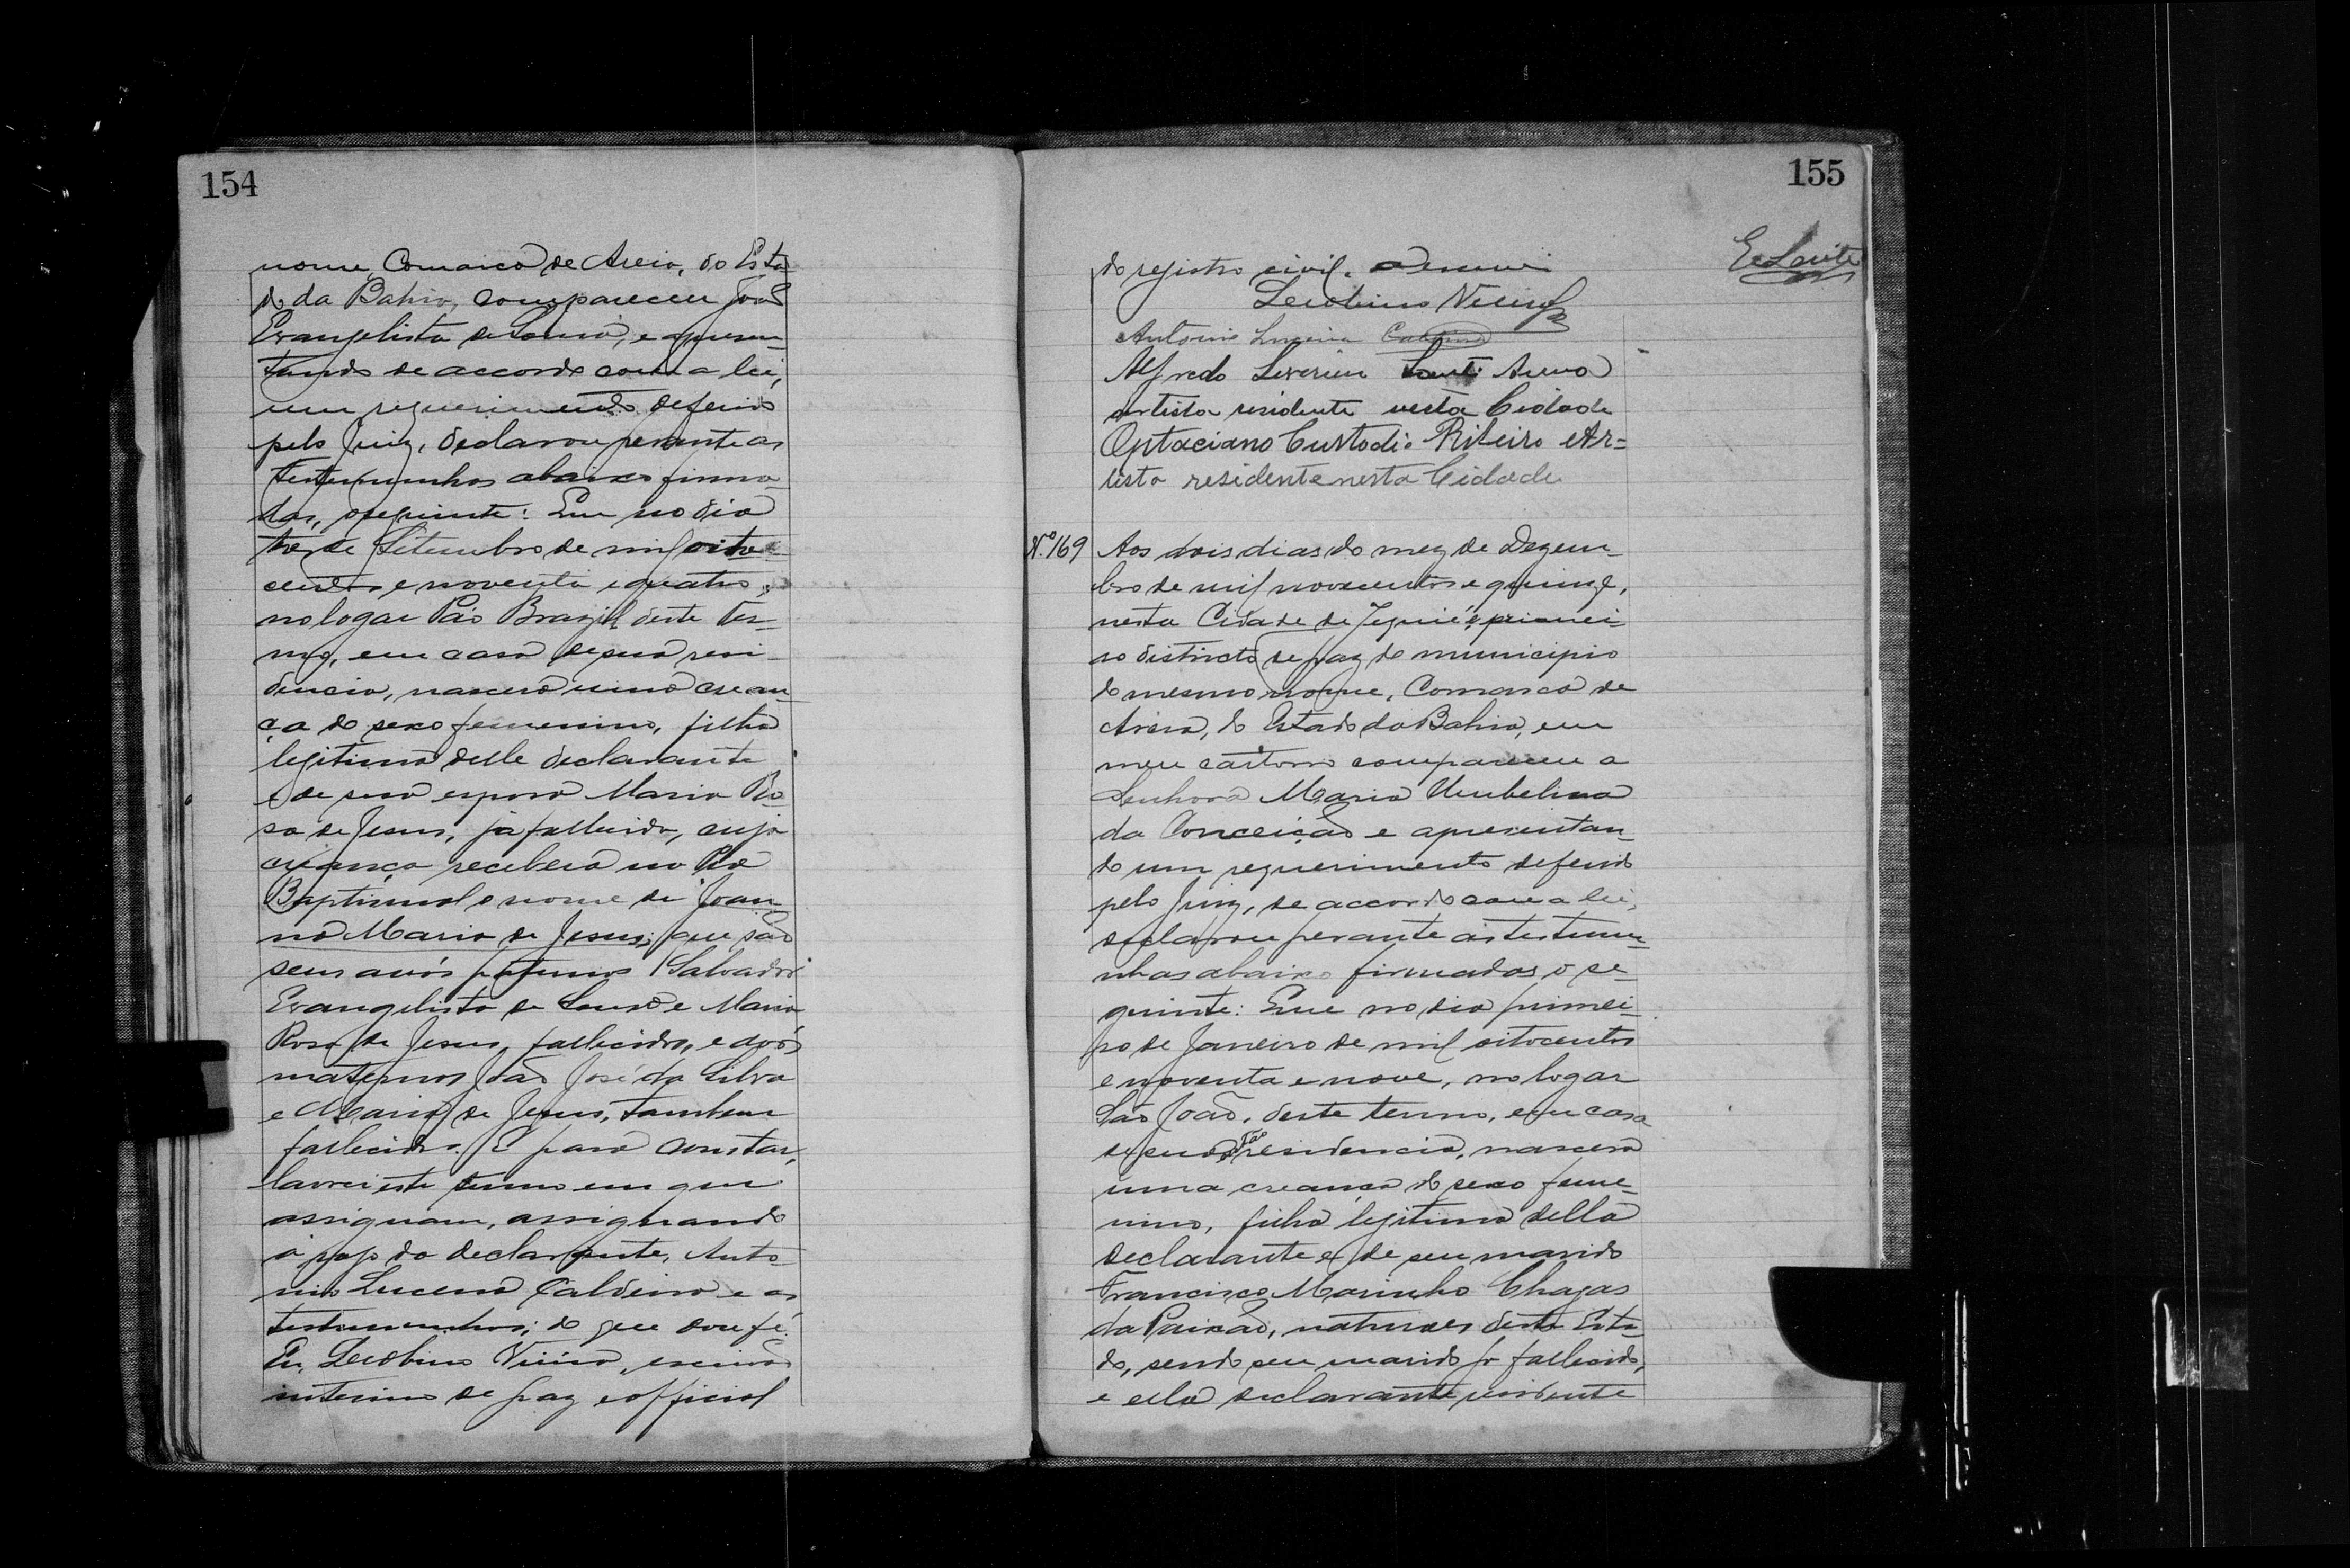 154
nome, Comarca de Areia, do Esta
do da Bahia, compareceu João
Evangelista de Souza, e apresen-
tando de accordo com a lei,
um requerimento deferido
pelo Juiz, declarou perante as
testemunhas abaixo firma-
das, o seguinte: Que no dia
tres de Setembro de mil oito
centos e noventa e quatro,
no logar Páo Brazil deste ter-
mo, em casa de sua resi-
dencia, nascera uma crean-
ça do sexo femenino, filha
legitima delle declarante
e de sua esposa Maria Ro-
sa de Jesus, já fallecida, cuja
creança recebera na Pia
Baptismal o nome de Joan-
na Maria de Jesus; que são
seus avós paternos Salvador
Evangelista de Souza e Maria
Rosa de Jesus, fallecidos, e avós
maternos João José da Silva
e Maria de Jesus, tambem
fallecidos. E para constar,
lavrei este termo em que
assignam, assignando
a rogo do declarante, Anto-
nio Lucena Caldeira e as
testemunhas; do que dou fé.
Eu, Leobino Vieira, escrivão
interino de paz e official
155
do registro civil. o escrevi
Leobino Vieira
Antonio Lucena Caldeira
Alfredo Severin
artista residente nesta Cidade
Optaciano Custodio Ribeiro Ar-
tista residente nesta Cidade
N.º 169 Aos dois dias do mez de Dezem-
bro de mil novecentos e quinze,
nesta Cidade de Jequié, primei-
ro districto de paz do municipio
do mesmo nome, Comarca de
Areia, do Estado da Bahia, em
meu cartorio compareceu a
Senhora Maria Umbelina
da Conceição e apresentan-
do um requerimento deferido
pelo Juiz, de accordo com a lei,
declarou perante as testemu-
nhas abaixo firmadas o se-
guinte: Que no dia primei-
ro de Janeiro de mil oitocentos
e noventa e nove, no logar
São João, deste termo, em casa
de sua residencia, nascera
uma creança do sexo feme-
nino, filha legitima della
declarante e de seu marido
Francisco Marinho Chagas
da Paixão, naturaes deste Esta-
do, sendo seu marido já fallecido,
e ella declarante residente